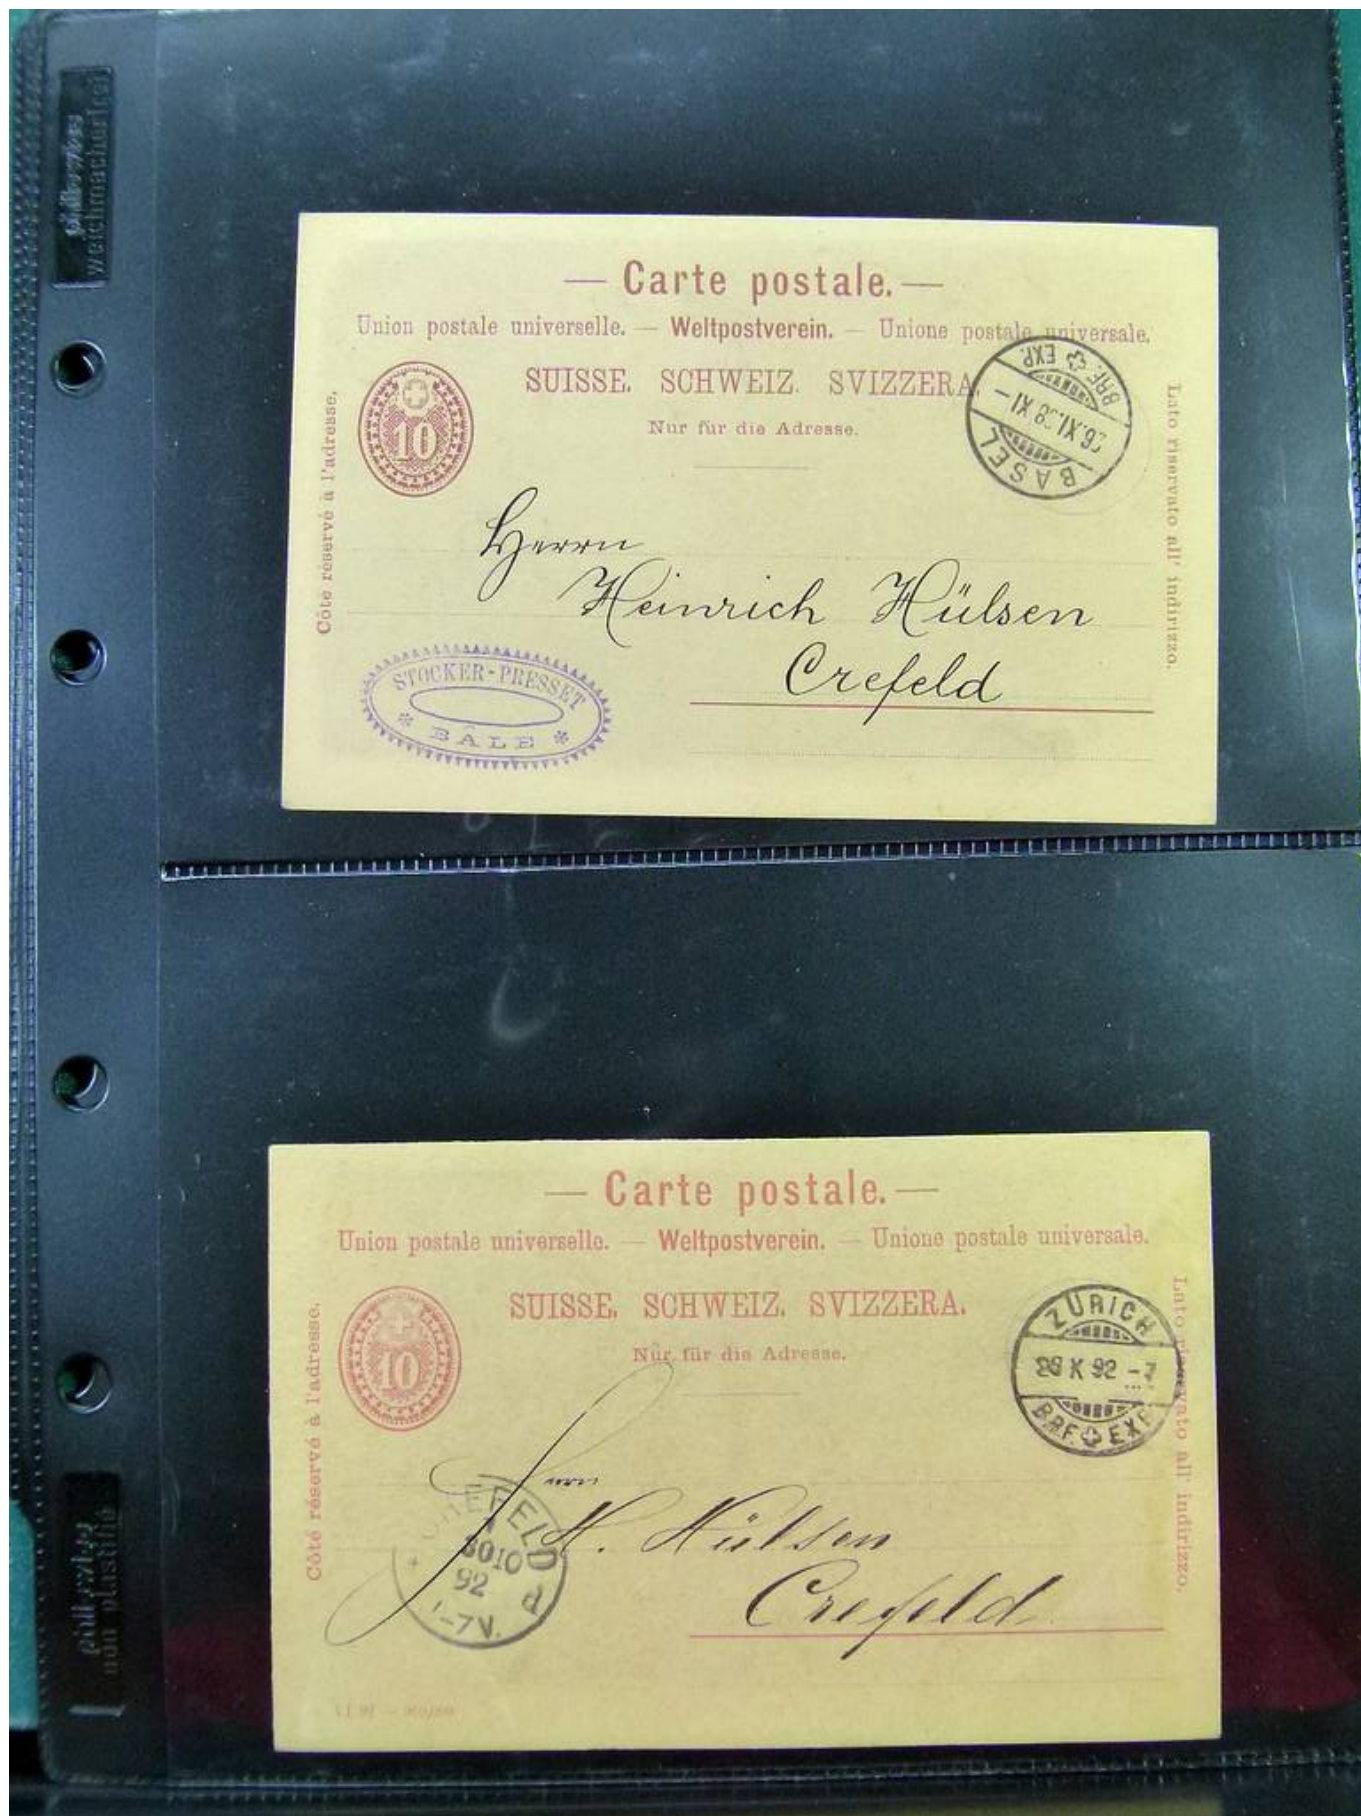 weichmacherfrei
— Carte postale. —
Union postale universelle. — Weltpostverein. — Unione postale universale.
SUISSE. SCHWEIZ. SVIZZERA.
Nur für die Adresse.
Côté réservé à l'adresse.
Lato riservato all' indirizzo.
10
BRF. EXP.
26.XI.88 XI—
BASEL
Herrn
Heinrich Hülsen
Crefeld
STOCKER-PRESSET
BÂLE
— Carte postale. —
Union postale universelle. — Weltpostverein. — Unione postale universale.
SUISSE. SCHWEIZ. SVIZZERA.
Nur für die Adresse.
Côté réservé à l'adresse.
Lato riservato all' indirizzo.
10
ZÜRICH
X 92
BRF. EXP.
Herrn
H. Hülsen
Crefeld
CREFELD
3010
92
-7V.
d
philotax
non plastifié